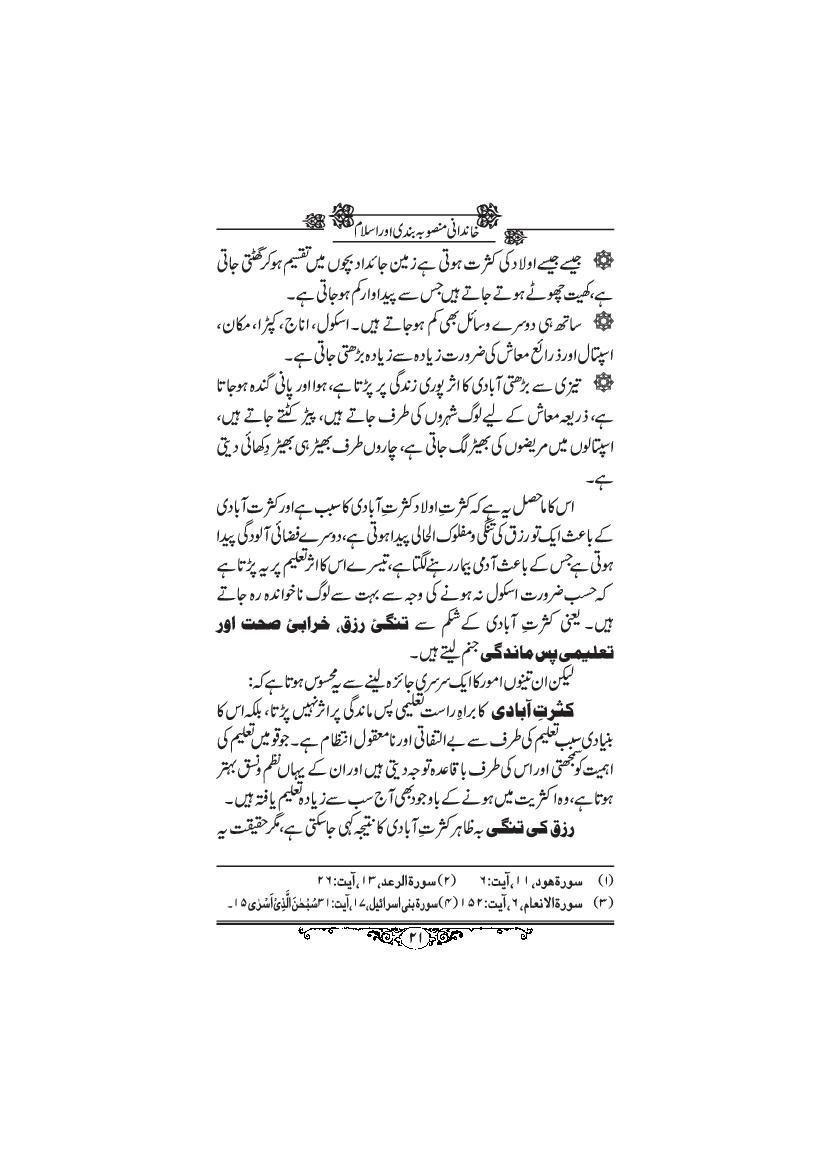 خاندانی منصوبہ بندی اور اسلام
جیسے جیسے اولاد کی کثرت ہوتی ہے زمین جائداد بچوں میں تقسیم ہوکر گھٹتی جاتی
ہے، کھیت چھوٹے ہوتے جاتے ہیں جس سے پیداوار کم ہوجاتی ہے۔
ساتھ ہی دوسرے وسائل بھی کم ہوجاتے ہیں۔ اسکول، اناج، کپڑا، مکان،
اسپتال اور ذرائع معاش کی ضرورت زیادہ سے زیادہ بڑھتی جاتی ہے۔
تیزی سے بڑھتی آبادی کا اثر پوری زندگی پر پڑتا ہے، ہوا اور پانی گندہ ہوجاتا
ہے، ذریعہ معاش کے لیے لوگ شہروں کی طرف جاتے ہیں، پیڑ کٹتے جاتے ہیں،
اسپتالوں میں مریضوں کی بھیڑ لگ جاتی ہے، چاروں طرف بھیڑ ہی بھیڑ دِکھائی دیتی
ہے۔
اس کا ماحصل یہ ہے کہ کثرتِ اولاد کثرتِ آبادی کا سبب ہے اور کثرت آبادی
کے باعث ایک تو رزق کی تنگی و مفلوک الحالی پیدا ہوتی ہے، دوسرے فضائی آلودگی پیدا
ہوتی ہے جس کے باعث آدمی بیمار رہنے لگتا ہے، تیسرے اس کا اثر تعلیم پر یہ پڑتا ہے
کہ حسب ضرورت اسکول نہ ہونے کی وجہ سے بہت سے لوگ ناخواندہ رہ جاتے
ہیں۔ یعنی کثرتِ آبادی کے شکم سے تنگیٔ رزق، خرابیٔ صحت اور
تعلیمی پس ماندگی جنم لیتے ہیں۔
لیکن ان تینوں امور کا ایک سرسری جائزہ لینے سے یہ محسوس ہوتا ہے کہ:
کثرتِ آبادی کا براہِ راست تعلیمی پس ماندگی پر اثر نہیں پڑتا، بلکہ اس کا
بنیادی سبب تعلیم کی طرف سے بے التفاتی اور نامعقول انتظام ہے۔ جو قومیں تعلیم کی
اہمیت کو سمجھتی اور اس کی طرف باقاعدہ توجہ دیتی ہیں اور ان کے یہاں نظم ونسق بہتر
ہوتا ہے، وہ اکثریت میں ہونے کے باوجود بھی آج سب سے زیادہ تعلیم یافتہ ہیں۔
رزق کی تنگی بہ ظاہر کثرتِ آبادی کا نتیجہ کہی جاسکتی ہے، مگر حقیقت یہ
(۱) سورۃ ھود، ۱۱، آیت: ۶ (۲) سورۃ الرعد، ۱۳، آیت: ۲۶
(۳) سورۃ الانعام، ۶، آیت: ۱۵۲ (۴) سورۃ بنی اسرائیل، ۱۷، آیت: ۳۱ سُبْحٰنَ الَّذِیْ اَسْرٰی ۱۵۔
۲۱